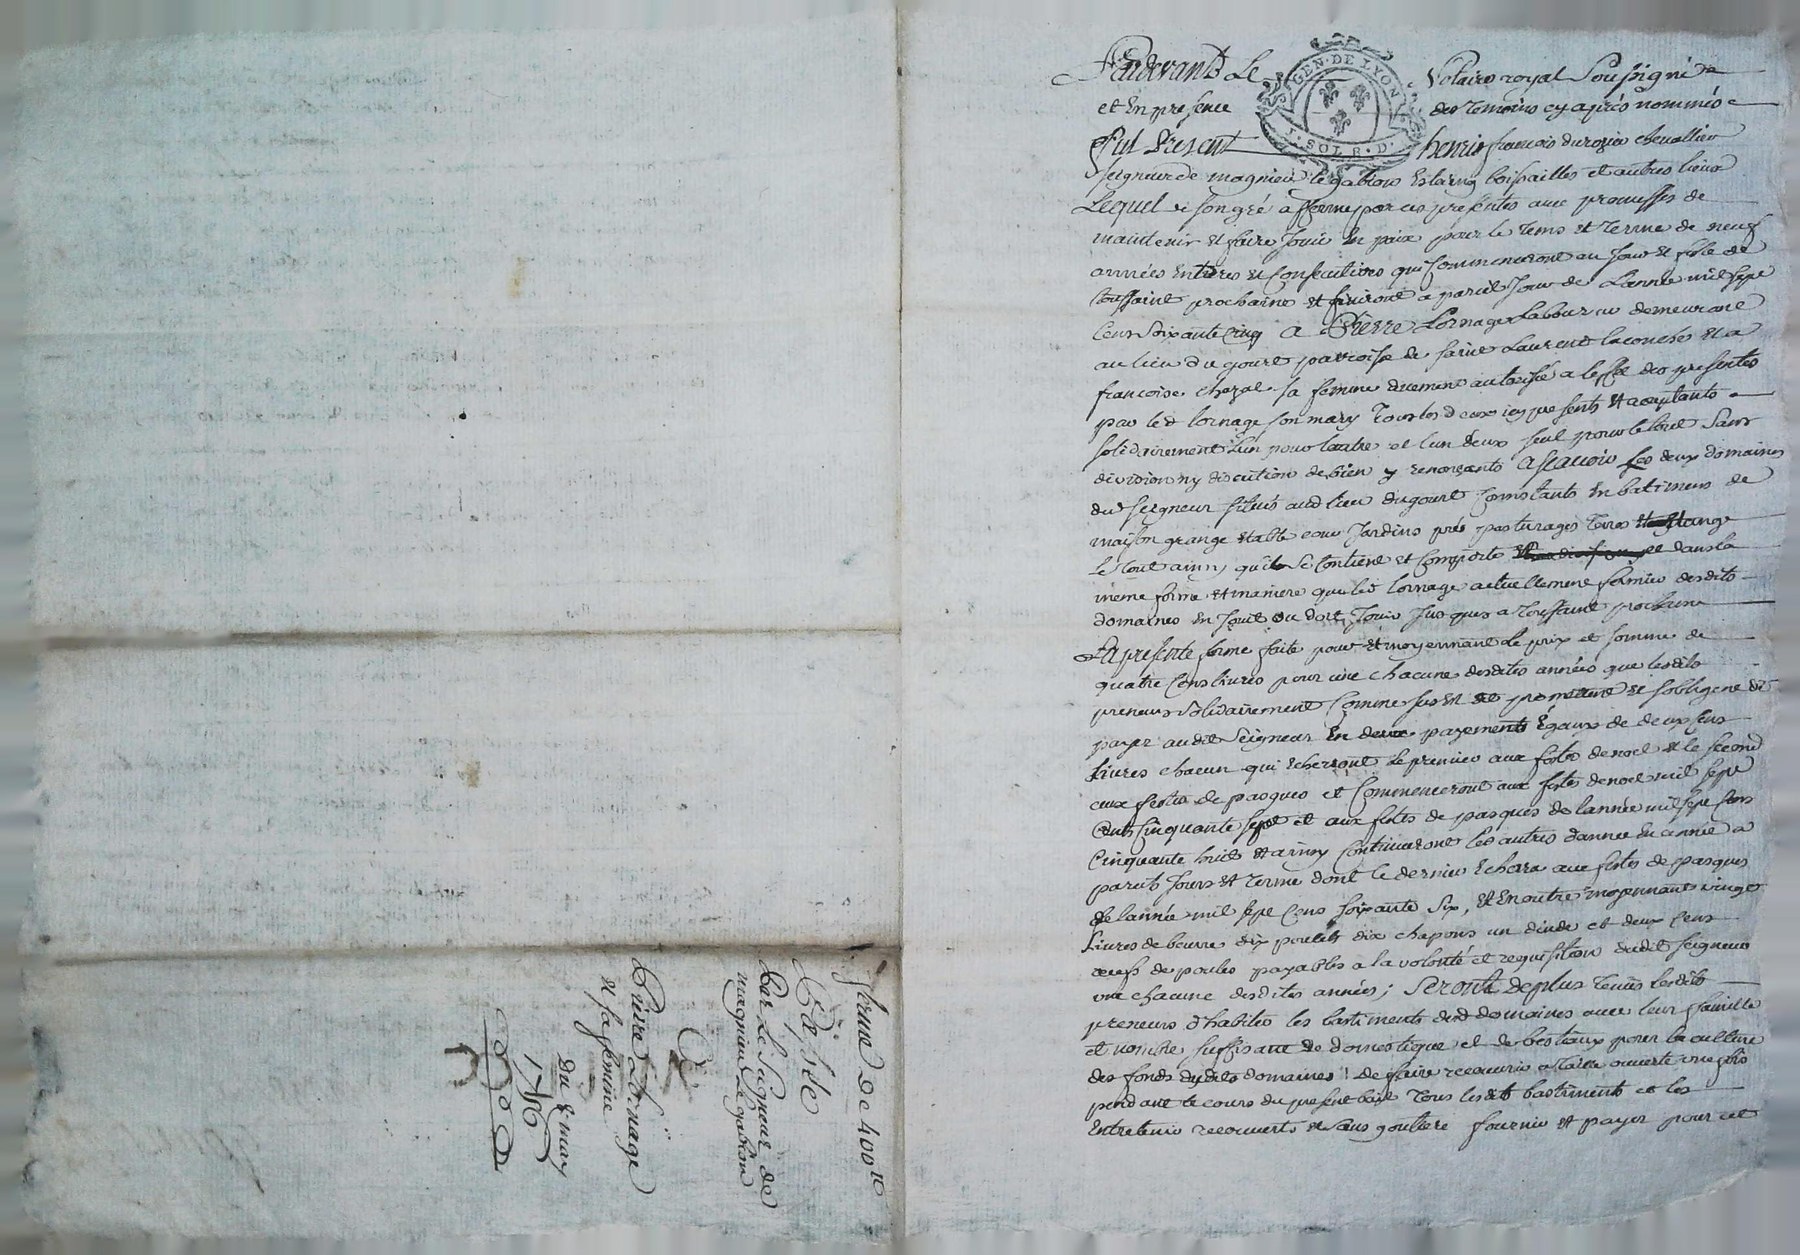 Pardevant Le Notaire royal Soussigné
et En presence des temoins cy apres nommés
GEN·DE LYON
1·SOL R·D·
Fut Present henrij françois durozier chevallier
seigneur de magnieu le gabion Estaing boissailles et autres lieux
Lequel de son gré afferme par ces presentes avec promesses de
maintenir et faire Jouir En paix pour le tems et terme de neuf
années Entieres et Consecutives qui Commenceront au Jour et fete de
toussaint prochaine et finiront a pareil Jour de L'année mil sept
Cens soixante cinq A Pierre Lornage Laboureur demeurant
au lieu du gourt parroisse de saint Laurent laconche et a
françoise chazal sa femme duement autorisée a l'effet des presentes
par led lornage son mary tous les deux icy presents et aceptants
solidairement L'un pour l'autre et l'un d'eux seul pour le tout sans
division ny discution de bien y renonçants Ascavoir Les deux domaines
du seigneur situés aud lieu du gourt Consistants En batimens de
maison grange Etable cour Jardins prés pasturages terres
Le tout ainsy qu'il se Contient et Comporte et dans la
même forme et maniere que led lornage actuellement fermier desdits
domaines En Jouit ou doit Jouir Jusques a toussaint prochaine
La presente ferme faite pour et moyennant le prix et somme de
quatre Cens livres pour une chacune desdites années que lesdits
preneurs solidairement Comme sus Est promettent et s'obligent de
payer audit seigneur En deux payements Egaux de deux Cens
livres chacun qui Echerront Le premier aux fetes de noel et le second
aux festes de pasques et Commenceront aux fetes de noel mil sept
Cents Cinquante sept et aux fetes de pasques de l'année mil sept Cens
Cinquante huit et ainsy Continueront les autres d'année En année a
pareils Jours et terme dont le dernier Echerra aux fetes de pasques
de l'année mil sept Cens soixante six, et En outre moyennant vingt
Livres de beurre dix poulets dix chapons un dinde et deux Cens
oeufs de poules payables a la volonté et requisition dudit seigneur
une chacune desdites années; Seront de plus tenus Lesdits
preneurs d'habiter les bastiments desd domaines avec leur famille
et nombre suffisant de domestique et de bestaux pour la culture
des fonds desdits domaines; De faire recouvrir a taille ouverte une fois
pendant le cours du present bail tous lesdts bastiments et les
Entretenir recouverts et sans goutiere fournir et payer pour cet
ferme De 400 lt
Passée
Par Le Seigneur de
magnieu Le gabion
A
Pierre Lornage
et sa femme
Du 8 may
1756